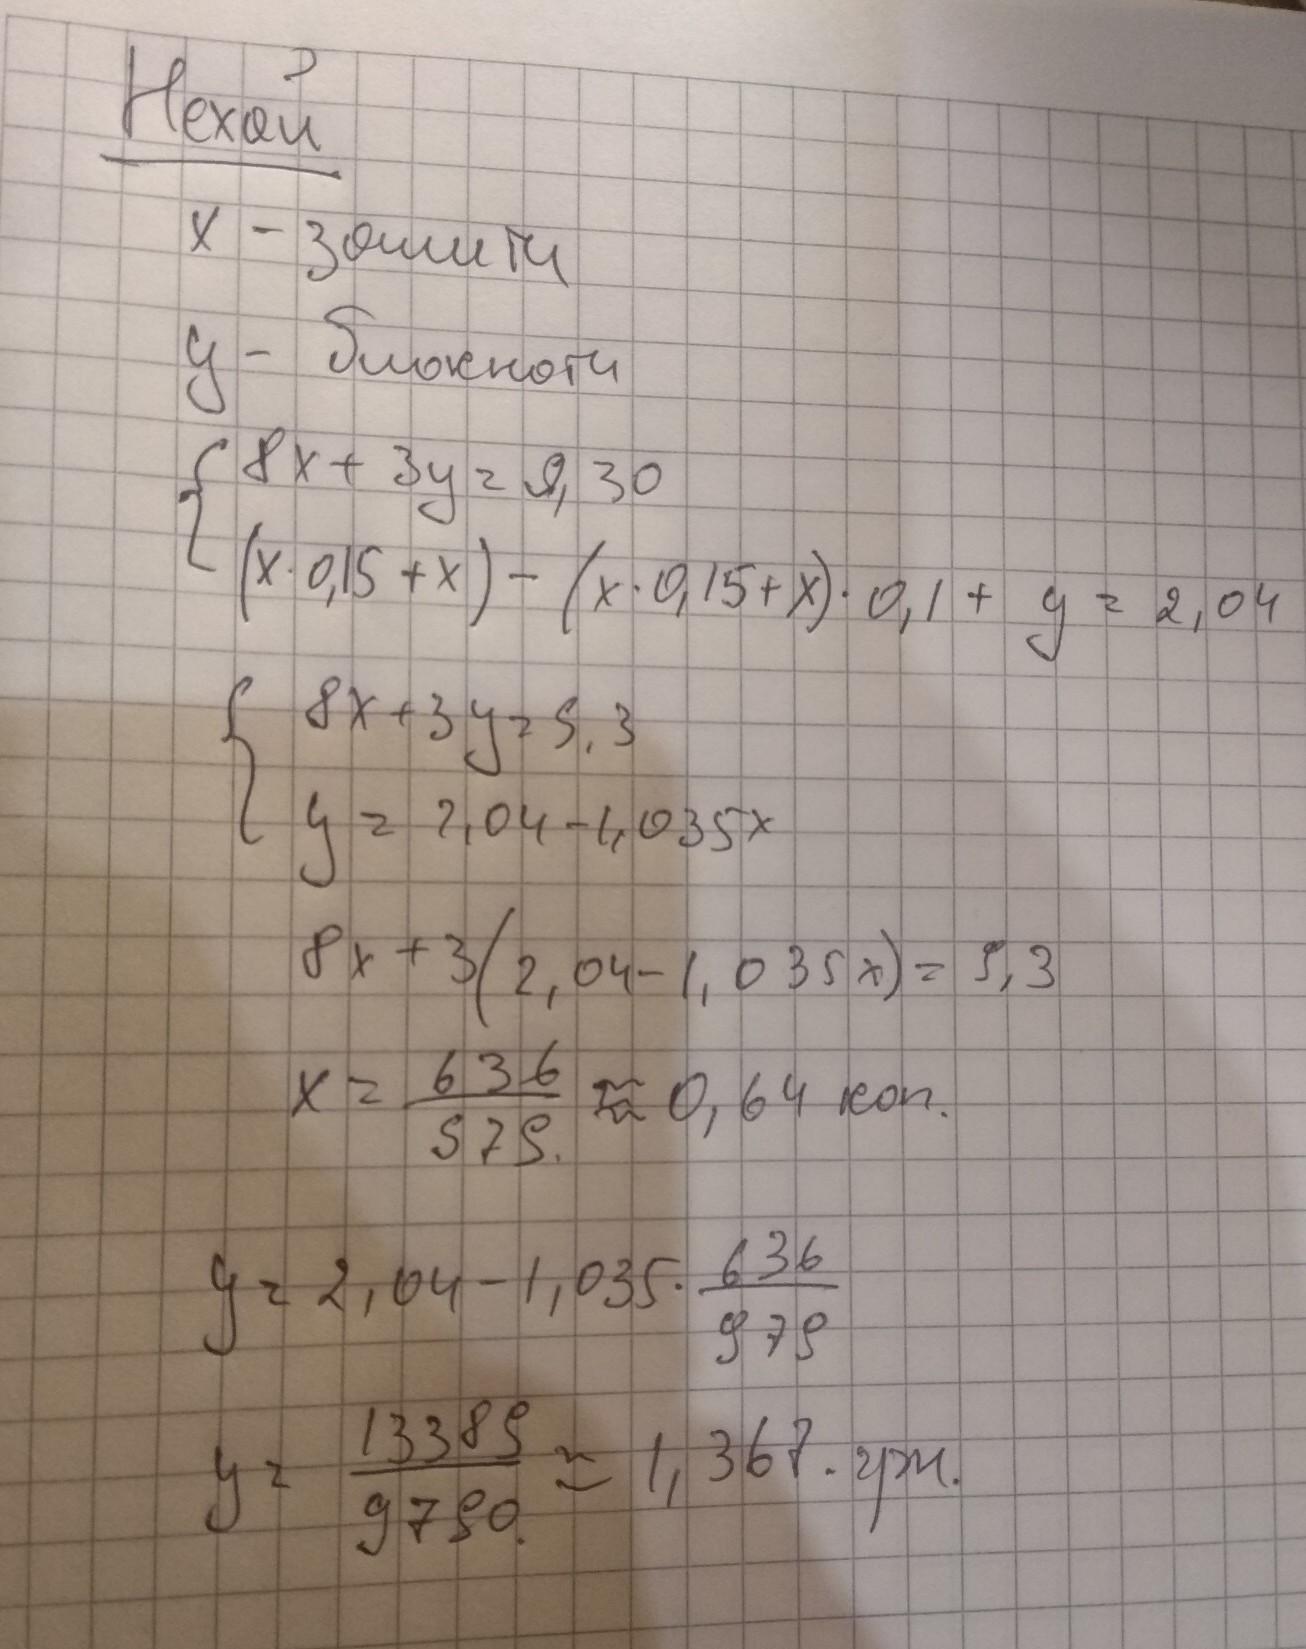 Нехай
x - зошити
y - блокноти
8x + 3y = 9,30
(x·0,15 + x) - (x·0,15 + x)·0,1 + y = 2,04
8x + 3y = 9,3
y = 2,04 - 1,035x
8x + 3(2,04 - 1,035x) = 9,3
x = 636/979. ≈ 0,64 коп.
y = 2,04 - 1,035·636/979
y = 13389/9790. ≈ 1,367. грн.